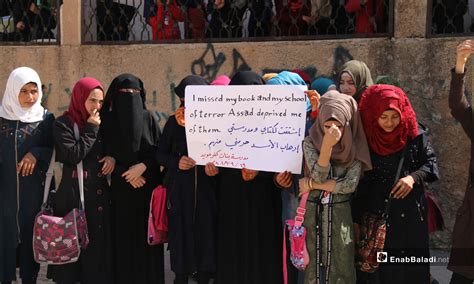 I missed my book and my school
terror Assad deprived me
of them
اشتقت لكتابي ومدرستي
إرهاب الأسد حرمني منهم
مدرسة بنات كفرعويد
EnabBaladi.net